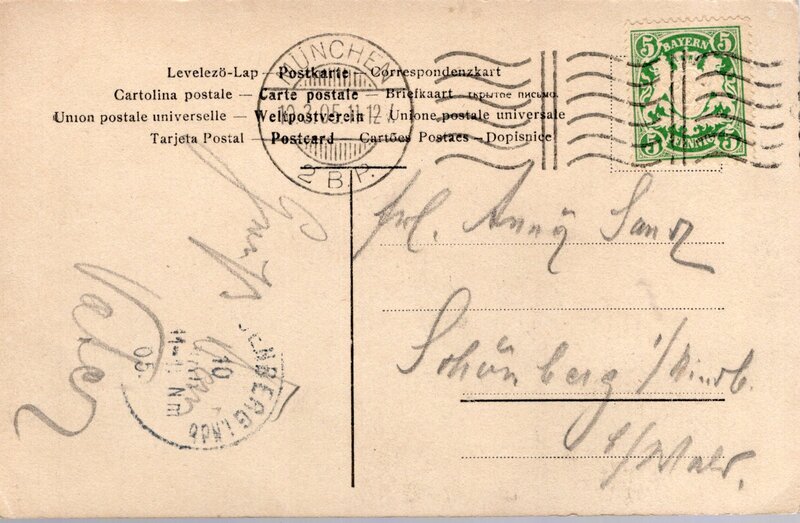 Levelezö-Lap — Postkarte — Correspondenzkart
Cartolina postale — Carte postale — Briefkaart — скрытое письмо.
Union postale universelle — Weltpostverein — Unione postale universale
Tarjeta Postal — Postcard — Cartões Postaes — Dopisnice
MÜNCHEN
2 B.P.
5 BAYERN 5
5 PFENNIG 5
Frl. Anny
Schönberg
b/Wald.
Gruß
Vater
10
05.